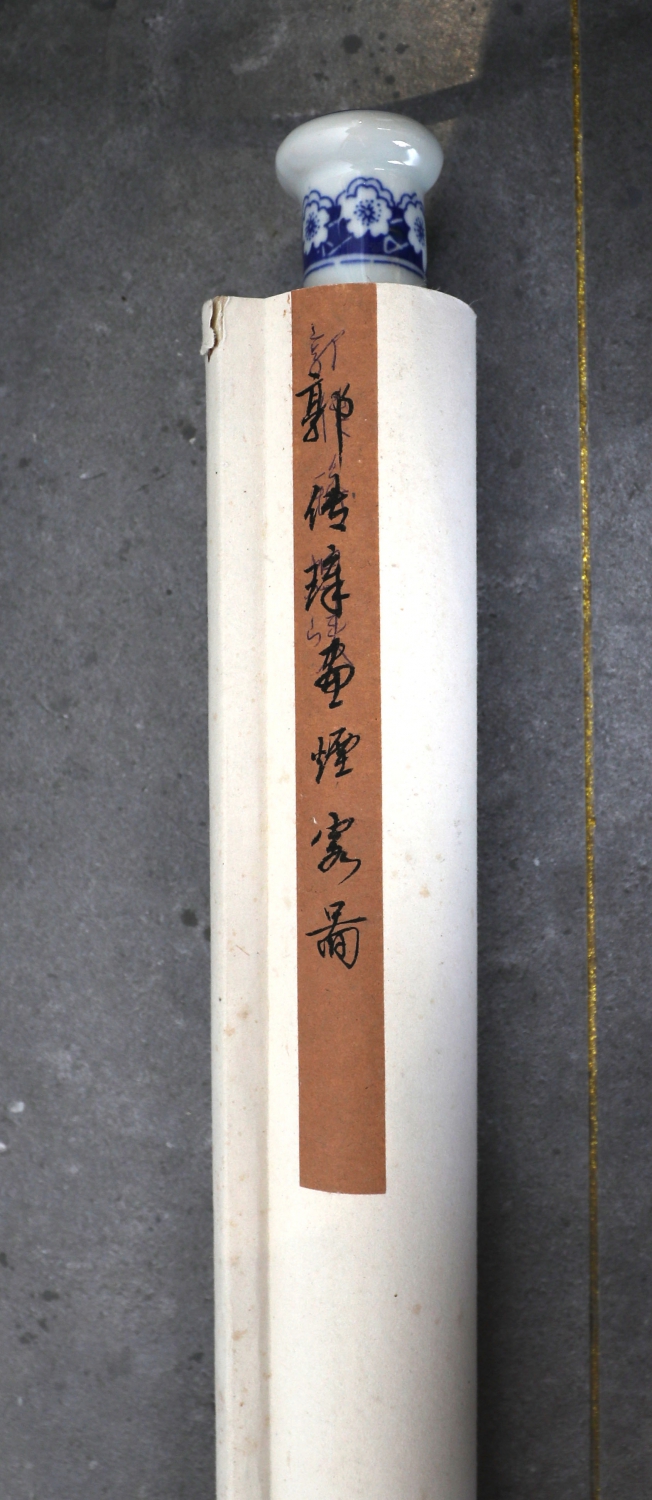 郭傳璋畫煙客圖